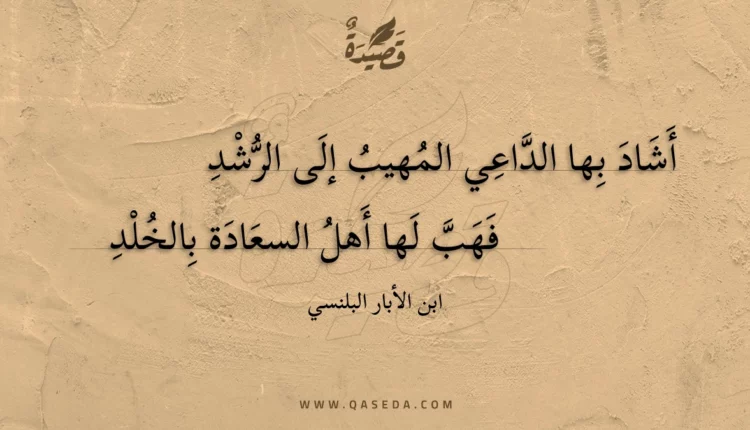 قَصِيْدَةٌ
أَشَادَ بِها الدَّاعِي المُهيبُ إلَى الرُّشْدِ
فَهَبَّ لَها أَهلُ السعَادَة بِالخُلْدِ
ابن الأبار البلنسي
WWW.QASEDA.COM